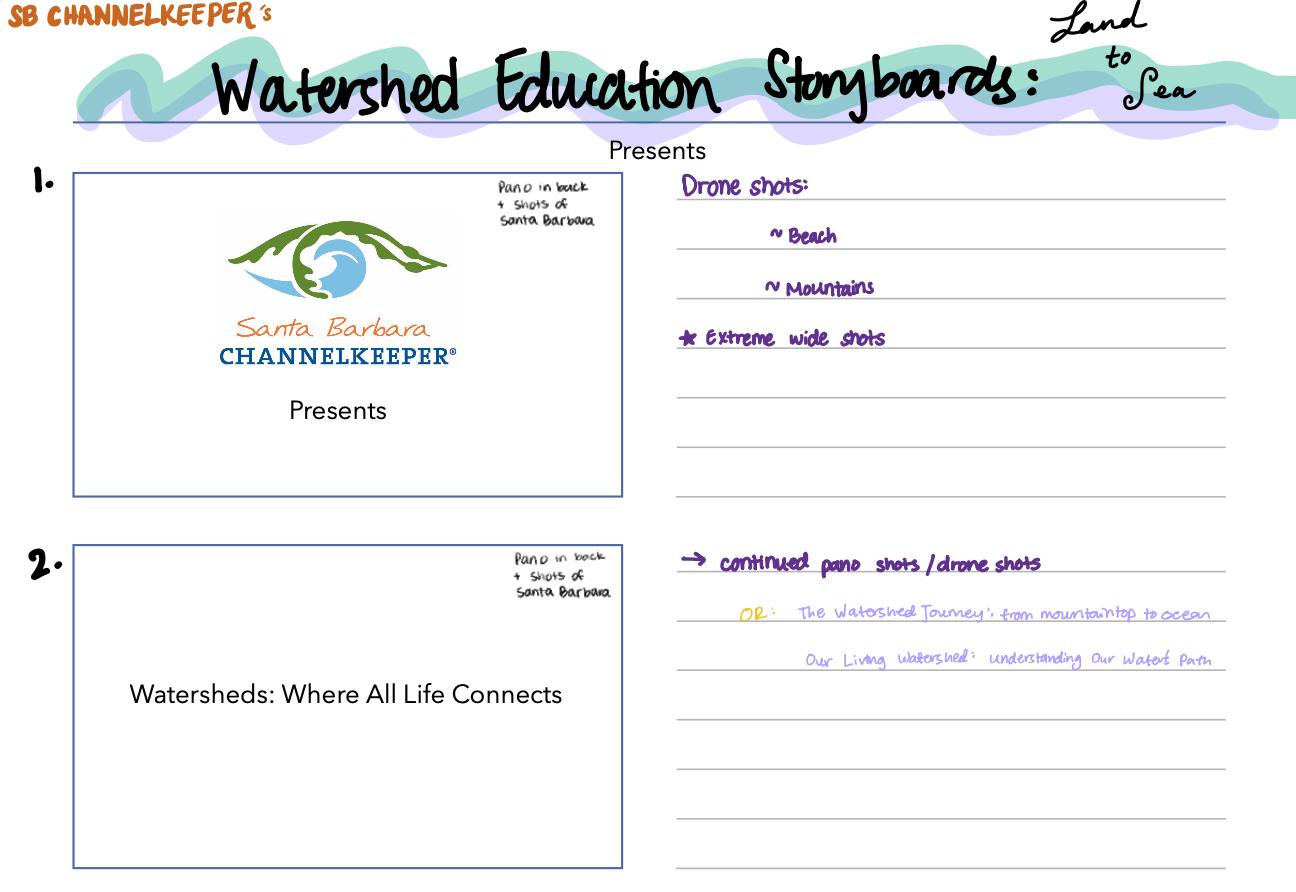 SB CHANNELKEEPER's
Land
to
Sea
Watershed Education Storyboards:
Presents
1.
Pano in back
+ shots of
Santa Barbara
Santa Barbara
CHANNELKEEPER®
Presents
Drone shots:
~ Beach
~ Mountains
★ Extreme wide shots
2.
Pano in back
+ shots of
Santa Barbara
Watersheds: Where All Life Connects
→ continued pano shots / drone shots
OR: The Watershed Journey: from mountaintop to ocean
Our Living Watershed: Understanding Our Water's Path